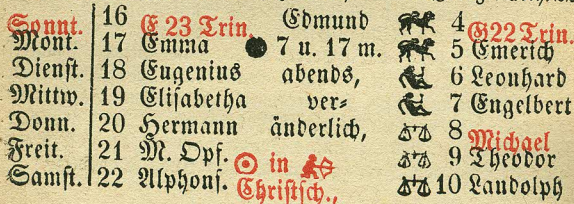 Sonnt. 16 E 23 Trin. Edmund 4 G22 Trin.
Mont. 17 Emma 7 u. 17 m. 5 Emerich
Dienst. 18 Eugenius abends, 6 Leonhard
Mittw. 19 Elisabetha ver= 7 Engelbert
Donn. 20 Hermann änderlich, 8 Michael
Freit. 21 M. Opf. ☉ in ♐ 9 Theodor
Samst. 22 Alphons. Christsch., 10 Landolph